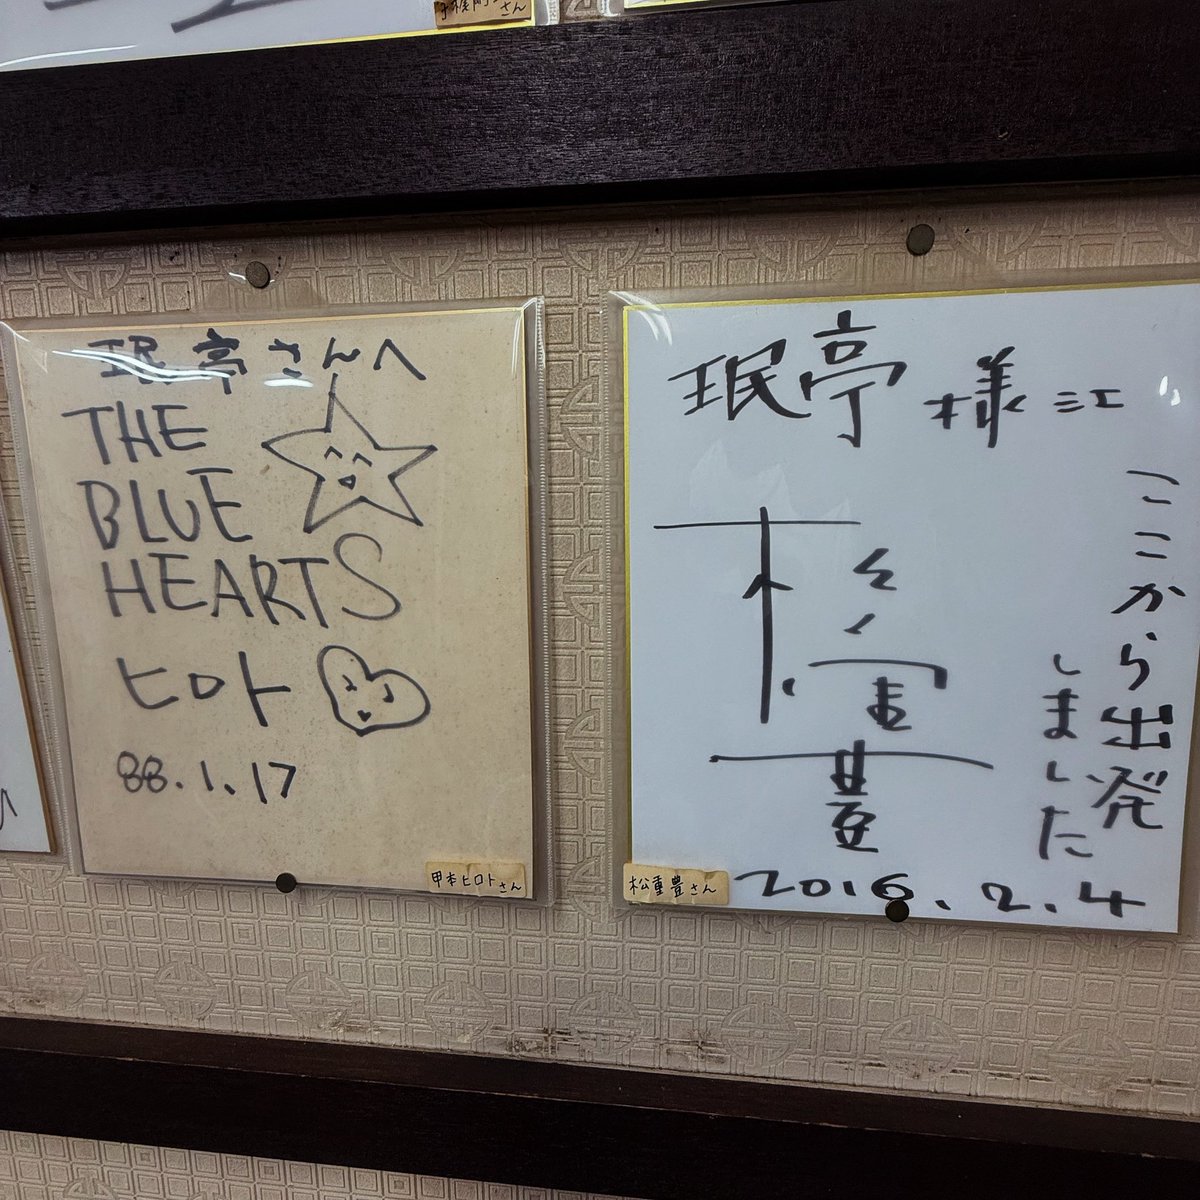 さん
珉亭さんへ
THE
BLUE
HEARTS
ヒロト
88.1.17
甲本ヒロトさん
珉亭様江
ここから出発
しました
松重
豊
2016.2.4
松重豊さん